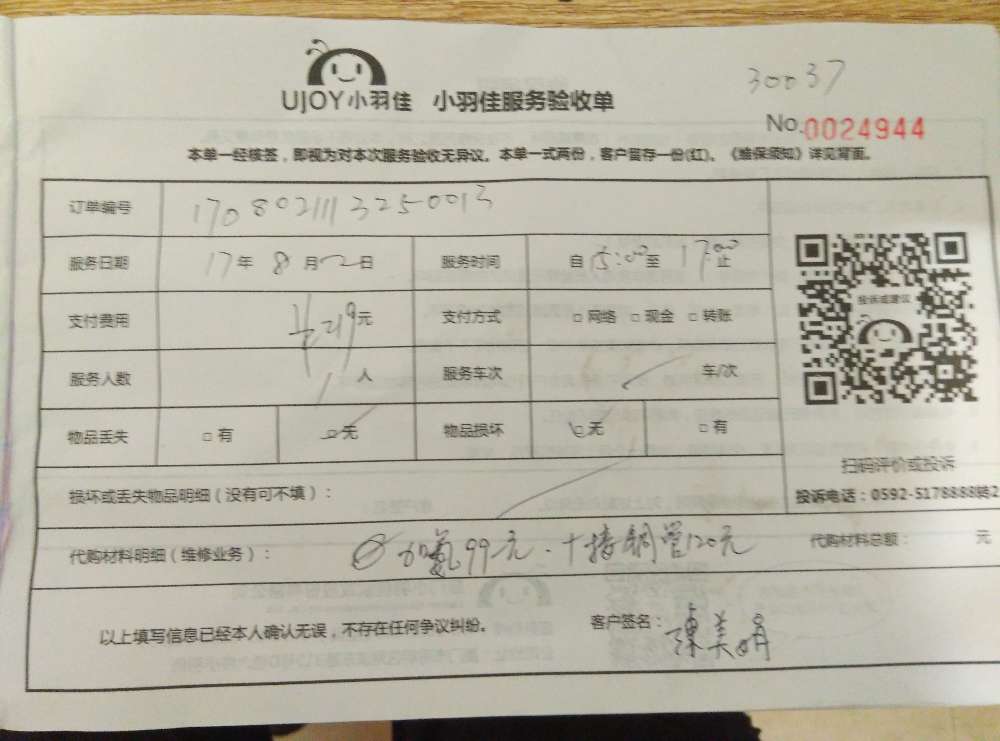 30037
UJOY小羽佳 小羽佳服务验收单
No.0024944
本单一经核签，即视为对本次服务验收无异议。本单一式两份，客户留存一份(红)。《维保须知》详见背面。
订单编号 1708021113250013
服务日期 17年8月2日 服务时间 自15:00至17:00止
投诉或建议
支付费用 219元 支付方式 □网络 □现金 □转账
服务人数 1人 服务车次 车/次
物品丢失 □有 □无 物品损坏 □无 □有
扫码评价或投诉
损坏或丢失物品明细（没有可不填）：
投诉电话：0592-5178888转2
代购材料明细（维修业务）： 加氟99元．+接铜管120元 代购材料总额： 元
以上填写信息已经本人确认无误，不存在任何争议纠纷。 客户签名： 陈美娟